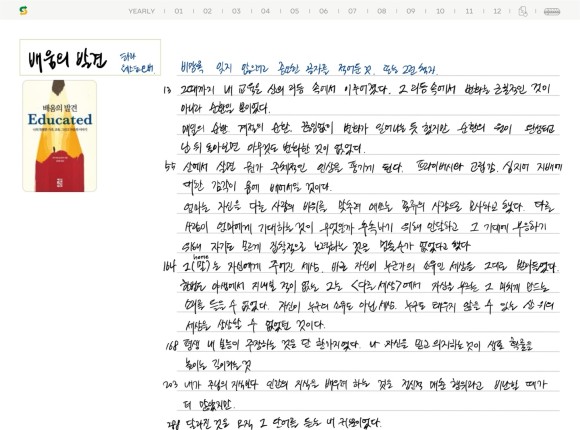 YEARLY | 01 | 02 | 03 | 04 | 05 | 06 | 07 | 08 | 09 | 10 | 11 | 12
배움의 발견
타라
배움의 발견
Educated
비망록 잊지 않으려고 중요한 골자를 적어둔 것. 또는 그런 책자.
13 그때까지 내 교육은 산의 리듬 속에서 이루어졌다. 그 리듬 속에서 변화는 근본적인 것이
아니라 순환일 뿐이었다.
매일의 순환 계절의 순환. 끊임없이 변화가 일어나는 듯 했지만 순환의 원이 완성되고
난 뒤 돌아보면 아무것도 변화한 것이 없었다.
55 산에서 살면 뭔가 주체적인 인상을 풍기게 된다. 프라이버시와 고립감, 심지어 지배에
대한 감각이 몸에 배어서일 것이다.
엄마는 자신을 다른 사람의 비위를 맞추려 애쓰는 종류의 사람으로 묘사하곤 했다. 다른
사람이 엄마에게 기대하는 것이 무엇인가 추측하기 위해 안달하고 그 기대에 부응하기
위해 자기도 모르게 집착적으로 노력하는 것을 멈출 수가 없었다고 했다
164 그(말)는 자신에게 주어진 세상, 바로 자신이 누군가의 소유인 세상을 그대로 받아들였다
home
한번도 야생에서 지내본 적이 없는 그는 <다른 세상>에서 자신을 부르는 그 미치게 만드는
소리를 들을 수 없었다. 자신이 누구의 소유도 아닌 세상. 누구도 태우지 않을 수 있는 산 위의
세상을 상상할 수 없었던 것이다.
168 평생 내 본능이 주장하는 것은 단 한가지였다. 나 자신을 믿고 의지하는 것이 생존 확률을
높이는 길이라는 것
203 내가 주님의 지식보다 인간의 지식을 배우려 하는 것은 정신적 매춘 행위라고 비난한 때가
더 많았지만.
288 달라진 것은 오직 그 단어를 듣는 내 귀뿐이었다.